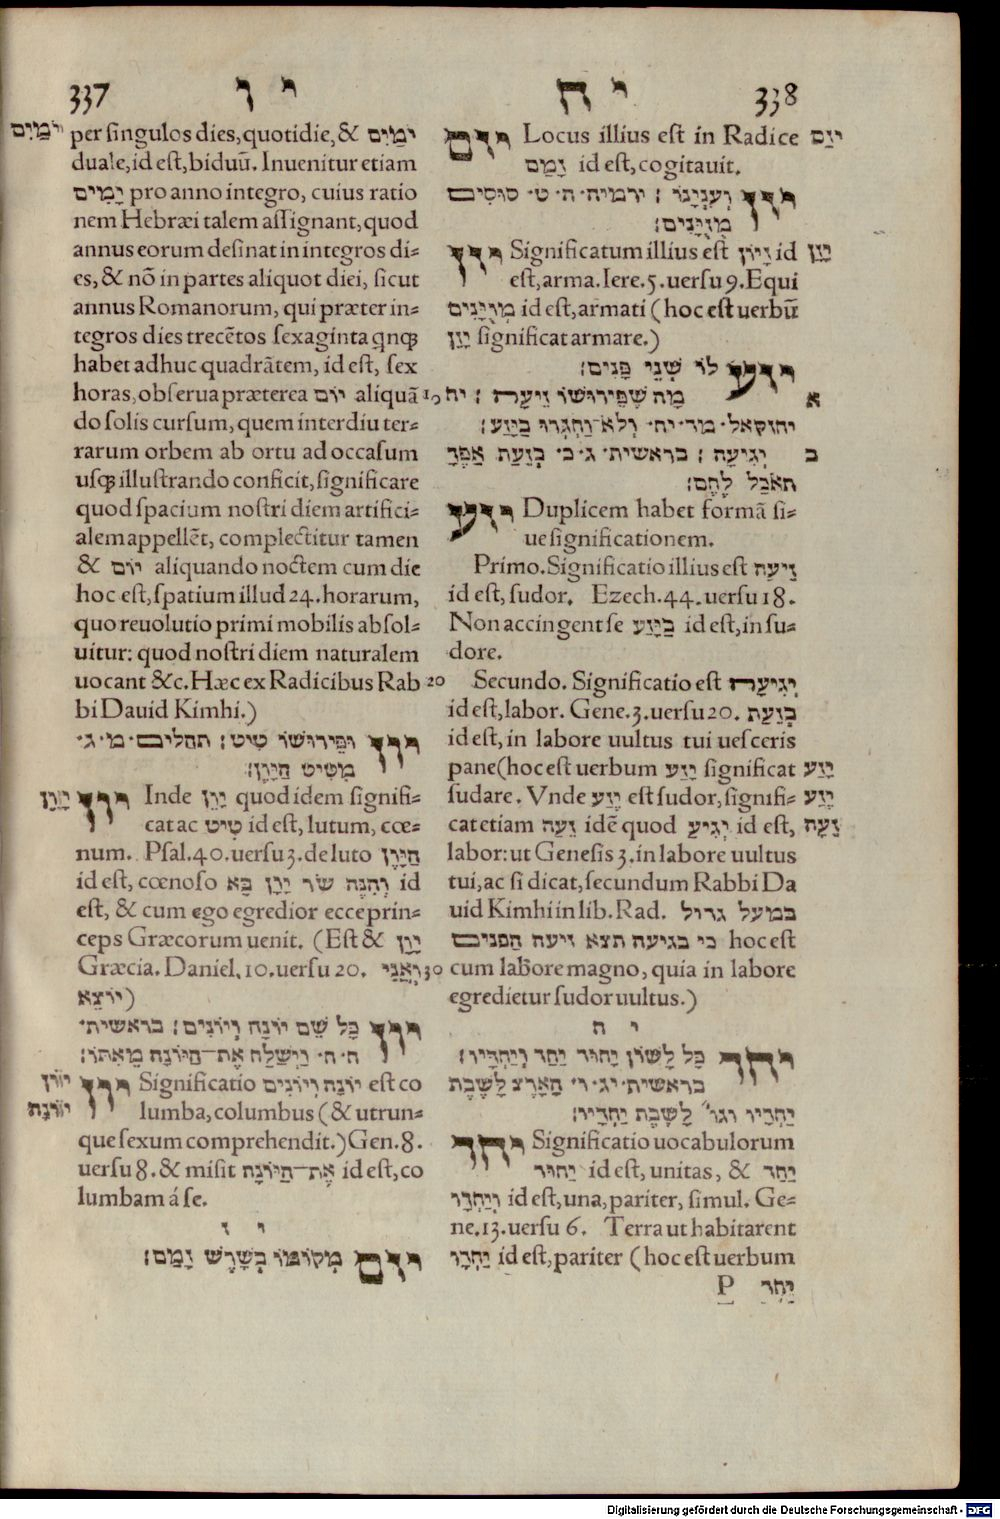 337 י ו
יֹמַיִם per singulos dies, quotidie, & יֹמַיִם
duale, id est, biduũ. Inuenitur etiam
יָמִים pro anno integro, cuius ratio
nem Hebræi talem assignant, quod
annus eorum desinat in integros di-
es, & nõ in partes aliquot diei, sicut
annus Romanorum, qui præter in-
tegros dies trecẽtos sexaginta qnqȝ
habet adhuc quadrãtem, id est, sex
horas, obserua præterea יוֹם aliquã 10
do solis cursum, quem interdiu ter-
rarum orbem ab ortu ad occasum
usqȝ illustrando conficit, significare
quod spacium nostri diem artifici-
alem appellẽt, complectitur tamen
& יוֹם aliquando noctem cum die
hoc est, spatium illud 24. horarum,
quo reuolutio primi mobilis absol-
uitur: quod nostri diem naturalem
uocant &c. Hæc ex Radicibus Rab 20
bi Dauid Kimhi.)
יון וּפֵירוּשׁוֹ טִיט׃ תהלים· מ· ג·
מִטִּיט הַיָּוֵן׃
יָוֵן יון Inde יָוֵן quod idem signifi-
cat ac טִיט id est, lutum, cœ-
num. Psal. 40. uersu 3. de luto הַיָּוֵן
id est, cœnoso וְהִנֵּה שַׂר יָוָן בָּא id
est, & cum ego egredior ecce prin-
ceps Græcorum uenit. (Est & יָוָן
Græcia. Daniel. 10. uersu 20. וַאֲנִי 30
יוֹצֵא)
יון כָּל שֵׁם יוֹנָה וְיוֹנִים׃ בראשית·
ח· ח· וַיְשַׁלַּח אֶת־הַיּוֹנָה מֵאִתּוֹ׃
יוֹן יון Significatio יוֹנָה וְיוֹנִים est co
יוֹנָה lumba, columbus (& utrun-
que sexum comprehendit.) Gen. 8.
uersu 8. & misit אֶת־הַיּוֹנָה id est, co
lumbam á se.
י ז
יזם מְקוֹמוֹ בְּשָׁרֶשׁ זָמַם׃
י ח 338
יזם Locus illius est in Radice יזַם
זָמַם id est, cogitauit.
יזן וְעִנְיָנוֹ׃ ירמיה· ה· ט· סוּסִים
מְיֻזָּנִים׃
יזן Significatum illius est זָיוֹן id יָזַן
est, arma. Iere. 5. uersu 9. Equi
מְיֻזָּנִים id est, armati (hoc est uerbũ
יָזַן significat armare.)
יזע לוֹ שְׁנֵי פָנִים׃
מָה שֶׁפֵּירוּשׁוֹ זֵיעָה׃ יח א
יחזקאל· מד· יח· וְלֹא יַחְגְּרוּ בַּיָּזַע׃
יְגִיעָה׃ בראשית· ג· כ· בְּזֵעַת אַפֶּךָ ב
תֹּאכַל לֶחֶם׃
יזע Duplicem habet formã si-
ue significationem.
Primo. Significatio illius est זֵיעָה
id est, sudor. Ezech. 44. uersu 18.
Non accingent se בַּיָּזַע id est, in su-
dore.
Secundo. Significatio est יְגִיעָה
id est, labor. Gene. 3. uersu 20. בְּזֵעַת
id est, in labore uultus tui uesceris
pane (hoc est uerbum יָזַע significat יָזַע
sudare. Vnde יֶזַע est sudor, signifi- יֶזַע
cat etiam זֵעָה idẽ quod יְגִיעַ id est, זֵעָה
labor: ut Genesis 3. in labore uultus
tui, ac si dicat, secundum Rabbi Da
uid Kimhi in lib. Rad. במעל גדול
כי בגיעה תצא זיעה הפנים hoc est
cum labore magno, quia in labore
egredietur sudor uultus.)
י ח
יחד כָּל לָשׁוֹן יָחוּד יַחַד וְיַחְדָּיו׃
בראשית· יג· ו· הָאָרֶץ לָשֶׁבֶת
יַחְדָּיו וגו׳ לָשֶׁבֶת יַחְדָּיו׃
יחד Significatio uocabulorum
יָחוּד id est, unitas, & יַחַד
וְיַחְדָּו id est, una, pariter, simul. Ge-
ne. 13. uersu 6. Terra ut habitarent
יַחְדָּו id est, pariter (hoc est uerbum
P יָחַד
Digitalisierung gefördert durch die Deutsche Forschungsgemeinschaft - DFG